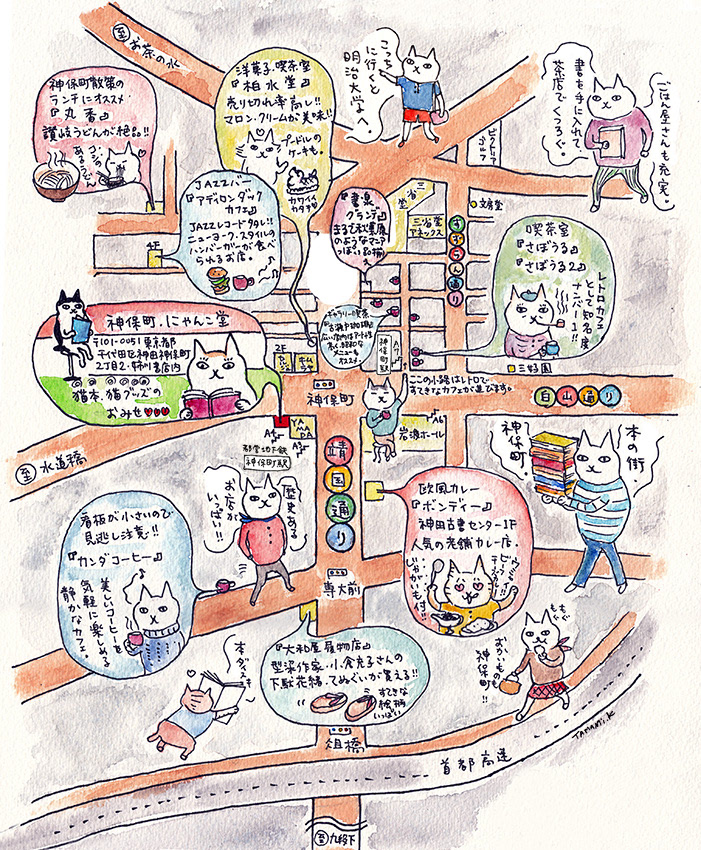 至お茶の水
神保町散策の
ランチにオススメ
『丸香』
讃岐うどんが絶品!!
コシの
あるうどん
洋菓子・喫茶室
『柏水堂』
売り切れ率高し!!
マロン・クリームが美味!!
プードルの
ケーキも。
カワイイ
カタチ
こっち
に行くと
明治大学へ。
ごはん屋さんも充実。
書も手に入れて
茶店でくつろぐ。
JAZZバー
『アディロンダック
カフェ』
JAZZレコードタレ!!
ニューヨーク・スタイルの
ハンバーガーが食べ
られるお店。
4F
『書泉
グランデ』
まるで秋葉原
のようなマニア
っぽい品揃え
三省堂
三省堂
アネックス
文房堂
すずらん通り
喫茶室
『さぼうる』
『さぼうる2』
レトロカフェ
として知名度
ナンバー1!!
神保町・にゃんこ堂
〒101-0051 東京都
千代田区神田神保町
2丁目2・姉川書店内
猫本、猫グッズの
おみせ
ギャラリー喫茶
メニューも
オススメ。
2F
神保町駅
A7
三好園
ここの小路はレトロで
すてきなカフェが並びます。
神保町
白山通り
岩波ホール
A6
YA
MA
DA
A4
A3
都営地下鉄
神保町駅
至水道橋
靖国通り
本の街、
神保町。
歴史ある
お店が
いっぱい!!
欧風カレー
『ボンディー』
神田古書センター1F
人気の老舗カレー店。
じゃがいも付!!
看板が小さいので
見逃し注意!!
『カンダコーヒー』
美しいコーヒーを
気軽に楽しめる
静かなカフェ。
専大前
『大和屋履物店』
型染作家・小倉充子さんの
下駄花緒、てぬぐいが買える!!
すてきな
絵柄
いっぱい
本ダイスキ
もぐもぐ
おかいもの
神保町!!
TAMAMI.K
俎橋
首都高速
至九段下